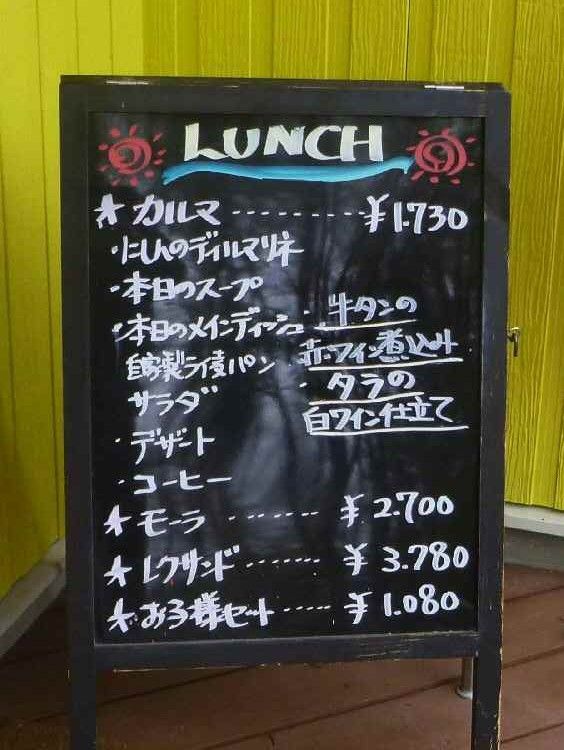 LUNCH
★カルマ ---------- ¥1.730
・にしんのディルマリネ
・本日のスープ
・本日のメインディッシュ
・牛タンの
赤ワイン煮込み
・タラの
白ワイン仕立て
自家製ライ麦パン
サラダ
・デザート
・コーヒー
★モーラ ------- ¥2.700
★レクサンド ------ ¥3.780
★お子様セット ----- ¥1.080